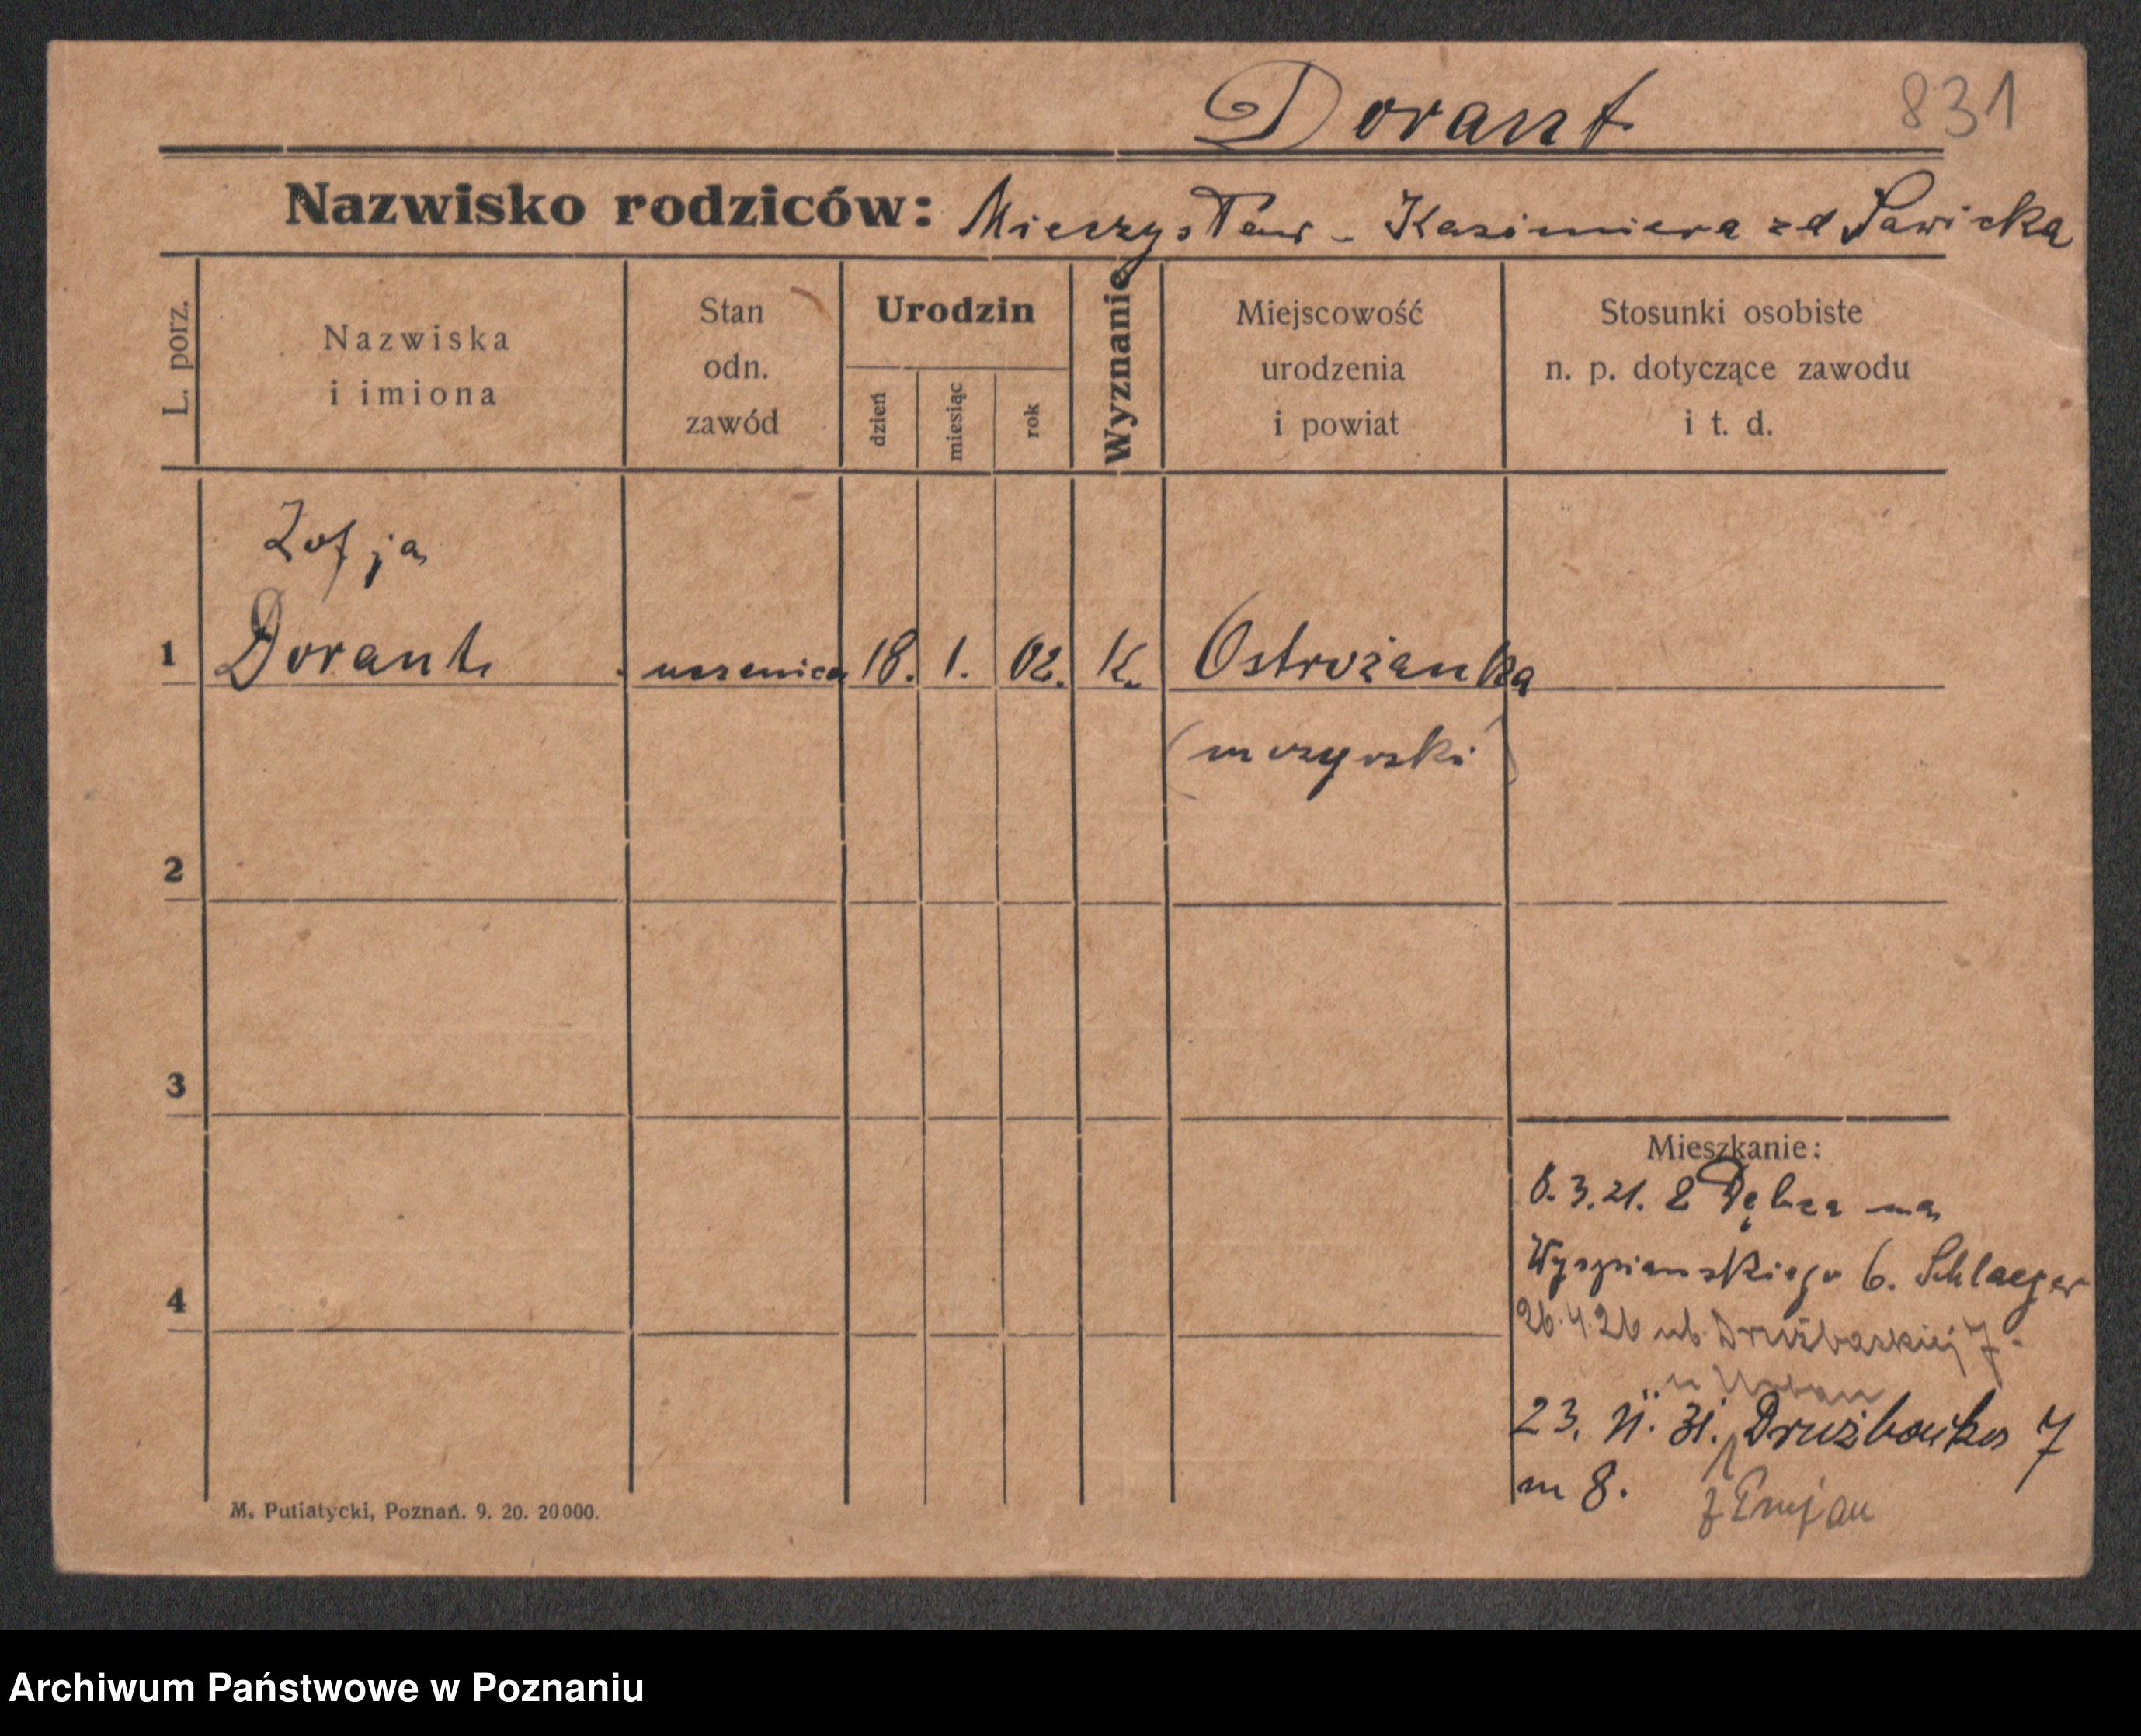 Dorant 831
Nazwisko rodziców: Mieczysław - Kasimiera zd Sawicka
L. porz.
Nazwiska
i imiona
Stan
odn.
zawód
Urodzin
dzień
miesiąc
rok
Wyznanie
Miejscowość
urodzenia
i powiat
Stosunki osobiste
n. p. dotyczące zawodu
i t. d.
Zofja
1 Dorant uczenica 18. 1. 02. K. Ostrożanka
2
3
4
Mieszkanie:
8. 3. 21. Z na
Wyspianskiego 6. Schlaeger
26.4.26 ul. Drużbackiej 7
23. 31. 7
m 8.
M. Putiatycki, Poznań. 9. 20. 20000.
Archiwum Państwowe w Poznaniu